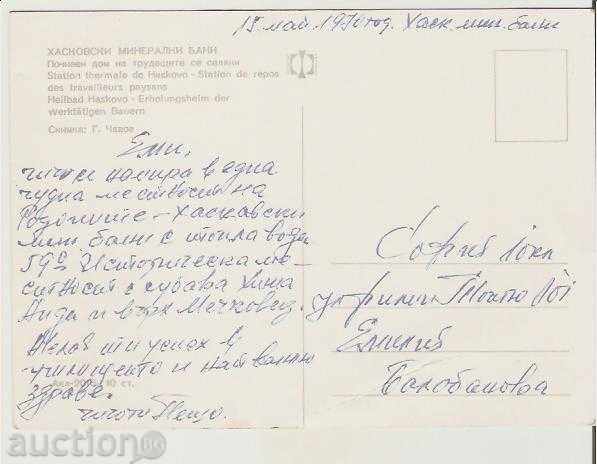 15. май. 1970 год. Хаск. мин. бани
ХАСКОВСКИ МИНЕРАЛНИ БАНИ
Почивен дом на трудещите се селяни
Station thermale de Haskovo - Station de repos
des travailleurs paysans
Heilbad Haskovo - Erholungsheim der
Werktätigen Bauern
Снимка: Г. Чавов
Еми,
чичо се намира в една
чудна местност на
Родопите - Хасковски
мин. бани с топла вода
59° С. Историческа ме-
стност с
и връх Мечковец.
Желая ти успех в
училището и най-важно
здраве.
чичо Пешо.
Акл-2015 10 ст.
София
ул. Филип Тотю 101
Емилия
Балабанова
auction.bg